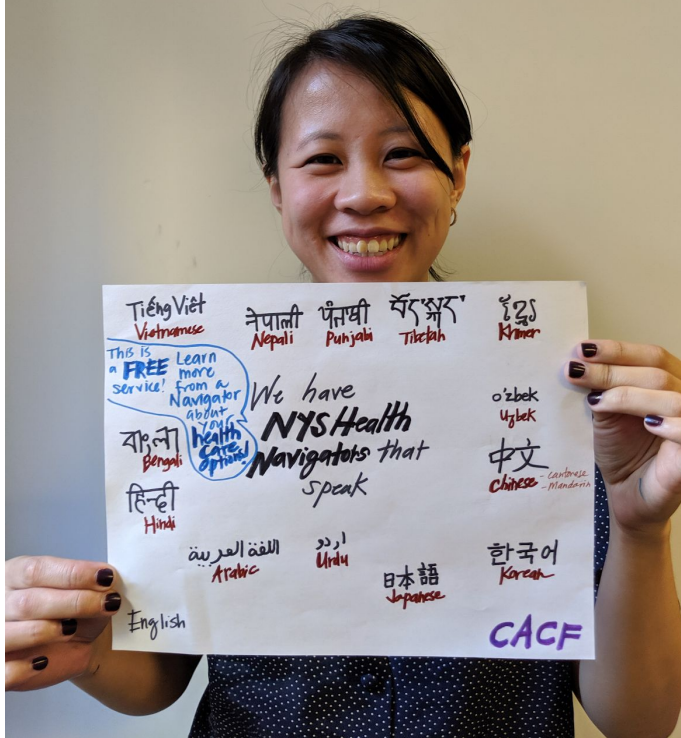 Tiếng Việt
Vietnamese
नेपाली
Nepali
ਪੰਜਾਬੀ
Punjabi
Tibetan
ខ្មែរ
Khmer
This is
a FREE
service!
Learn
more
from a
Navigator
about
your
health
care
options!
We have
NYS Health
Navigators that
speak
o'zbek
Uzbek
বাংলা
Bengali
中文
Chinese
- Cantonese
- Mandarin
हिन्दी
Hindi
اللغة العربية
Arabic
اردو
Urdu
日本語
Japanese
한국어
Korean
English
CACF